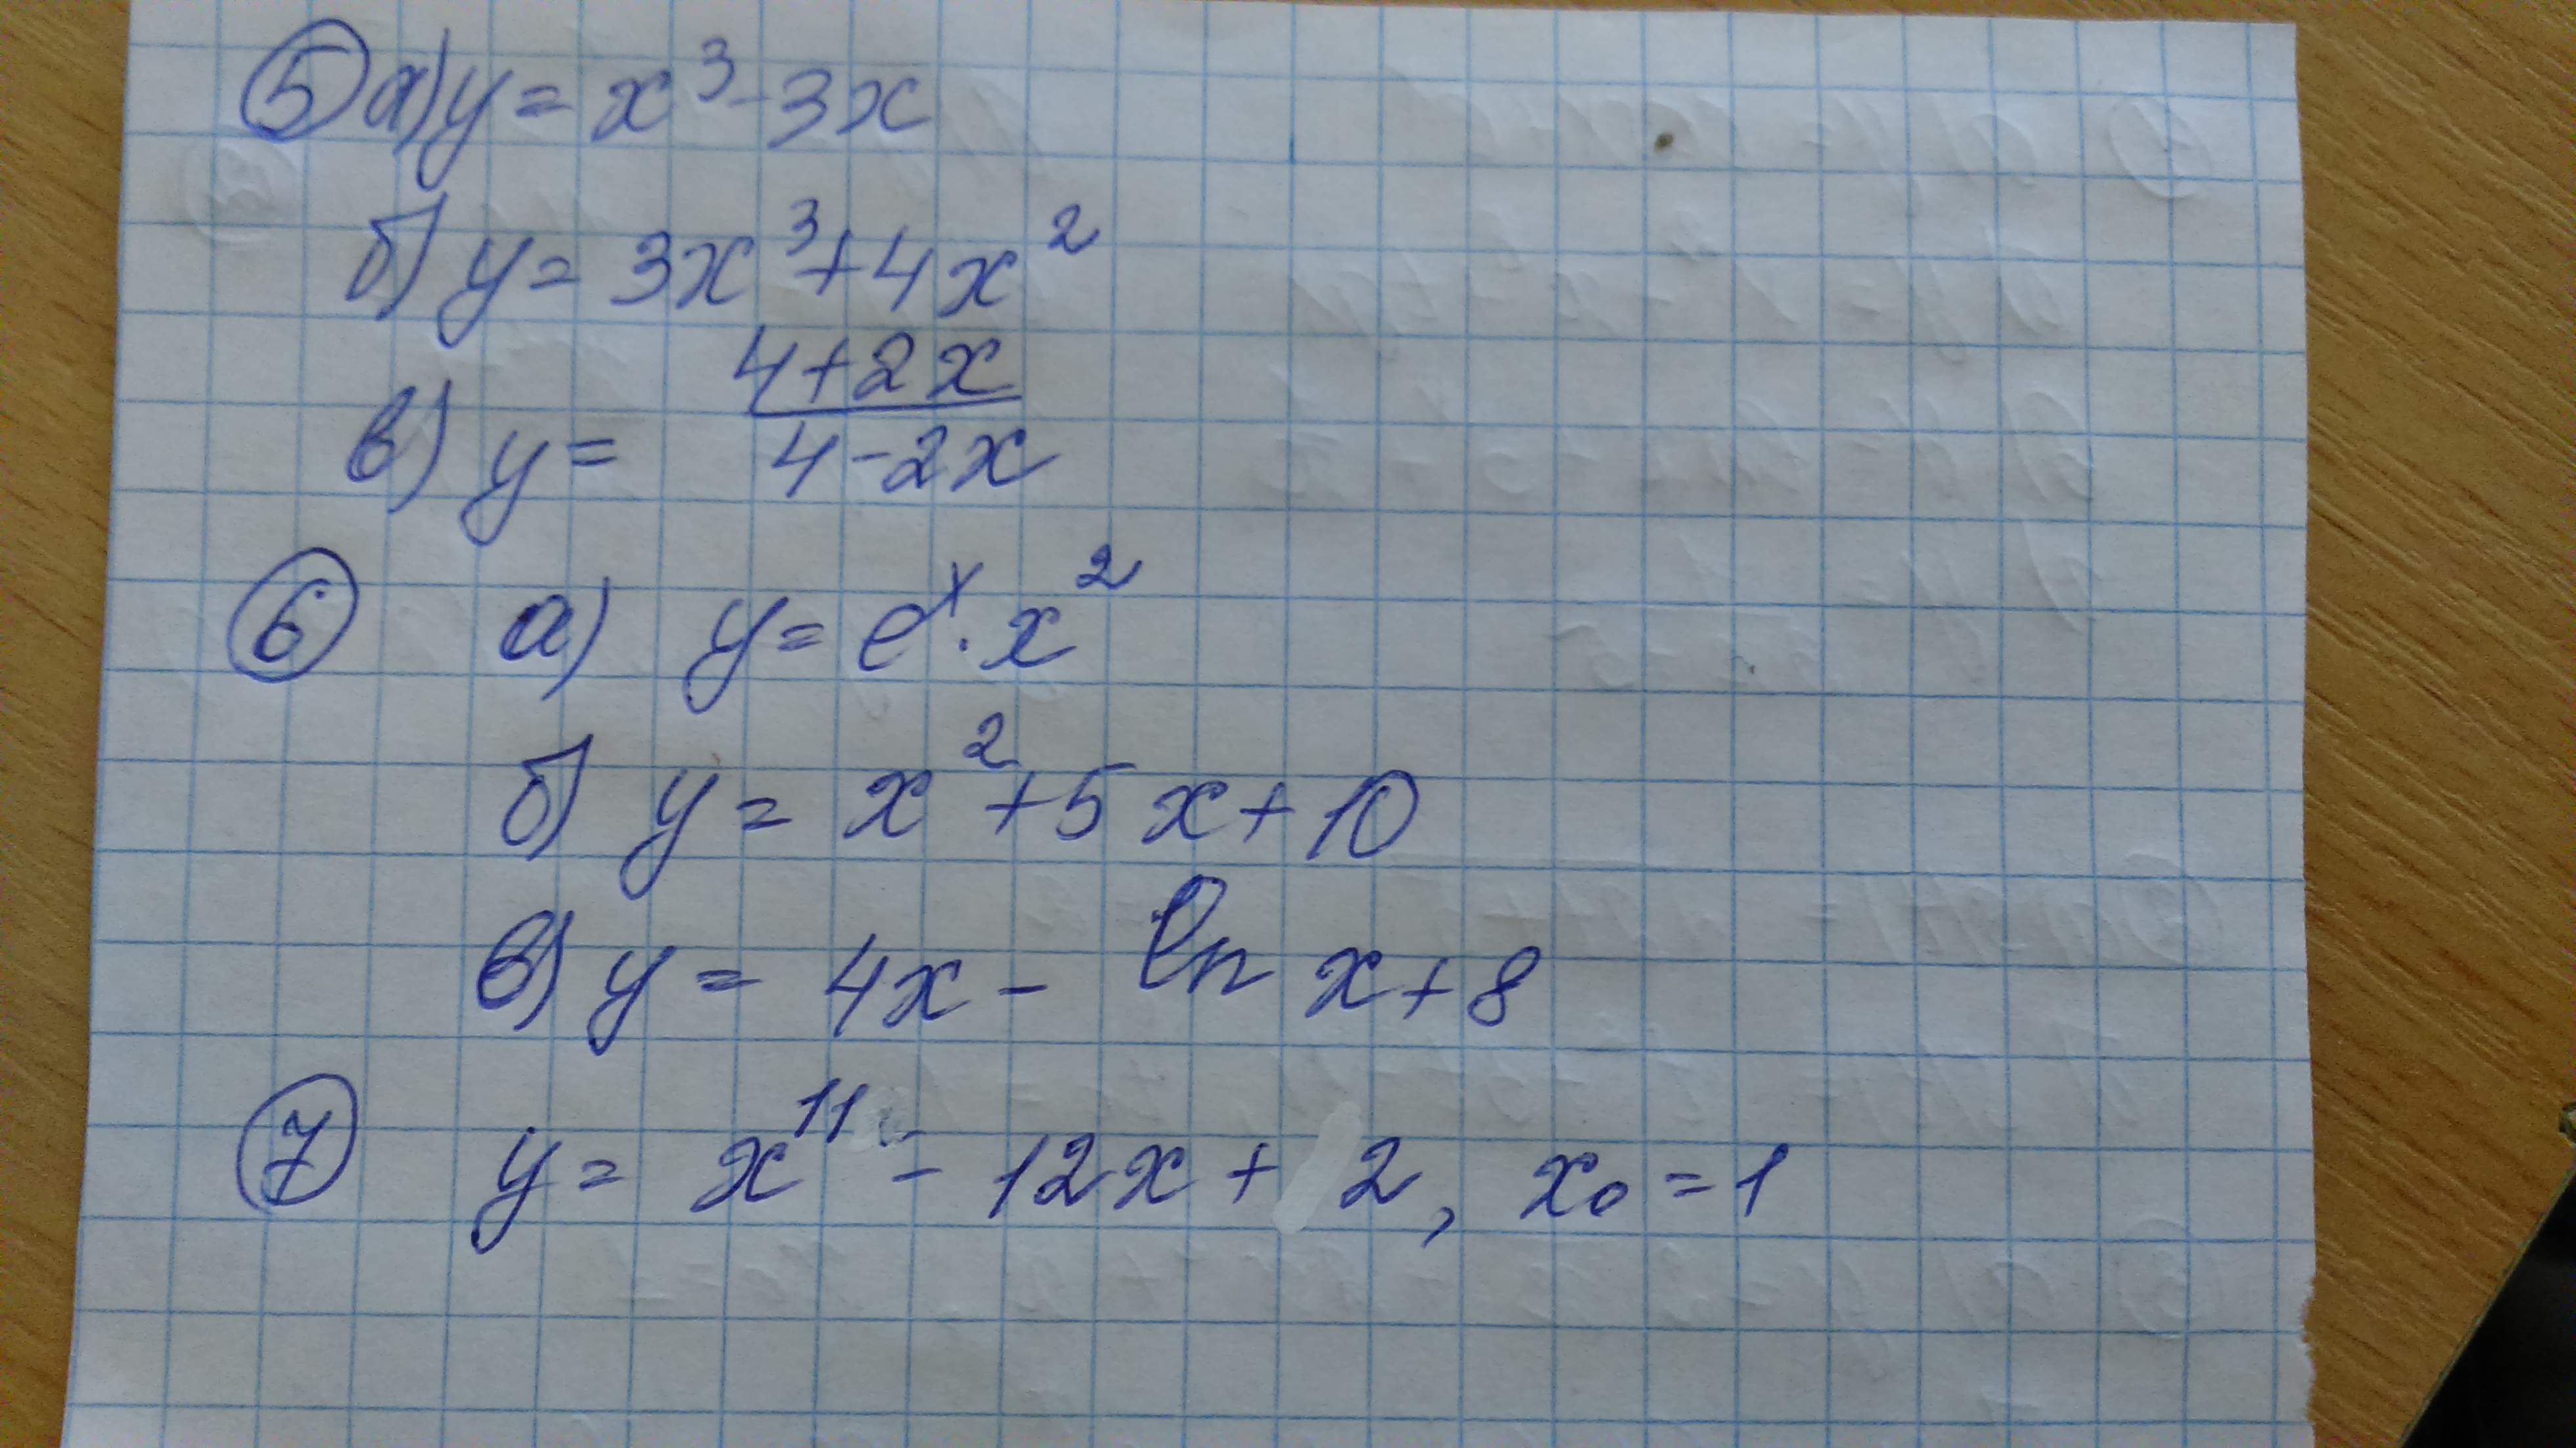 5 а) y = x³ - 3x
б) y = 3x³ + 4x²
в) y = (4+2x)/(4-2x)
6 а) y = eˣ · x²
б) y = x² + 5x + 10
в) y = 4x - ln x + 8
7 y = x¹¹ - 12x + 2, x₀ = 1